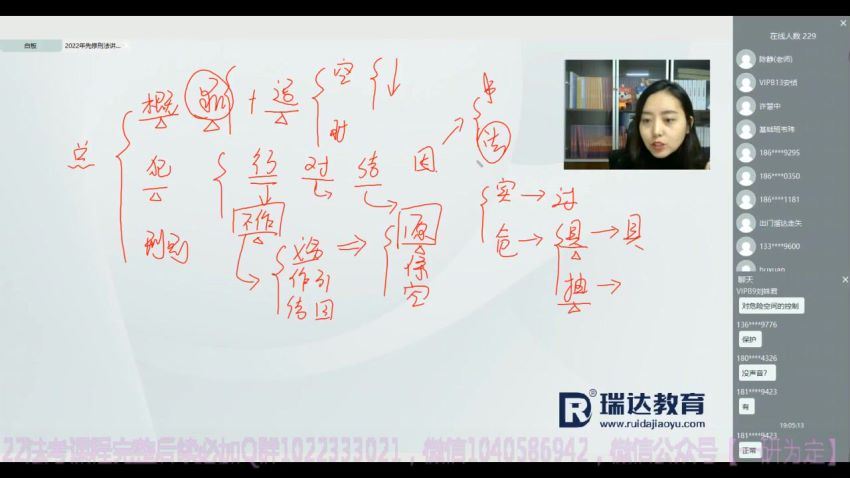 白板
2022年先修刑法讲...
总
概
+
空
时
犯
行
对
结
因
不作
义务
作引
结因
源
保
空
刑罚
法
实→过
危→具→具
抽→
R®瑞达教育
www.ruidajiaoyu.com
在线人数 229
陈静(老师)
VIPB13安倩
许警中
基础班韦玮
186****9295
186****0350
186****1181
出门遛达走失
133****9600
huxuan
聊天
VIPB9刘姝君
对危险空间的控制
136****9776
保护
180****4326
没声音?
181****9423
有
19:05:13
181****9423
正常
22法考课程完整后续必加Q群1022333021，微信1040586942，微信公众号【一研为定】